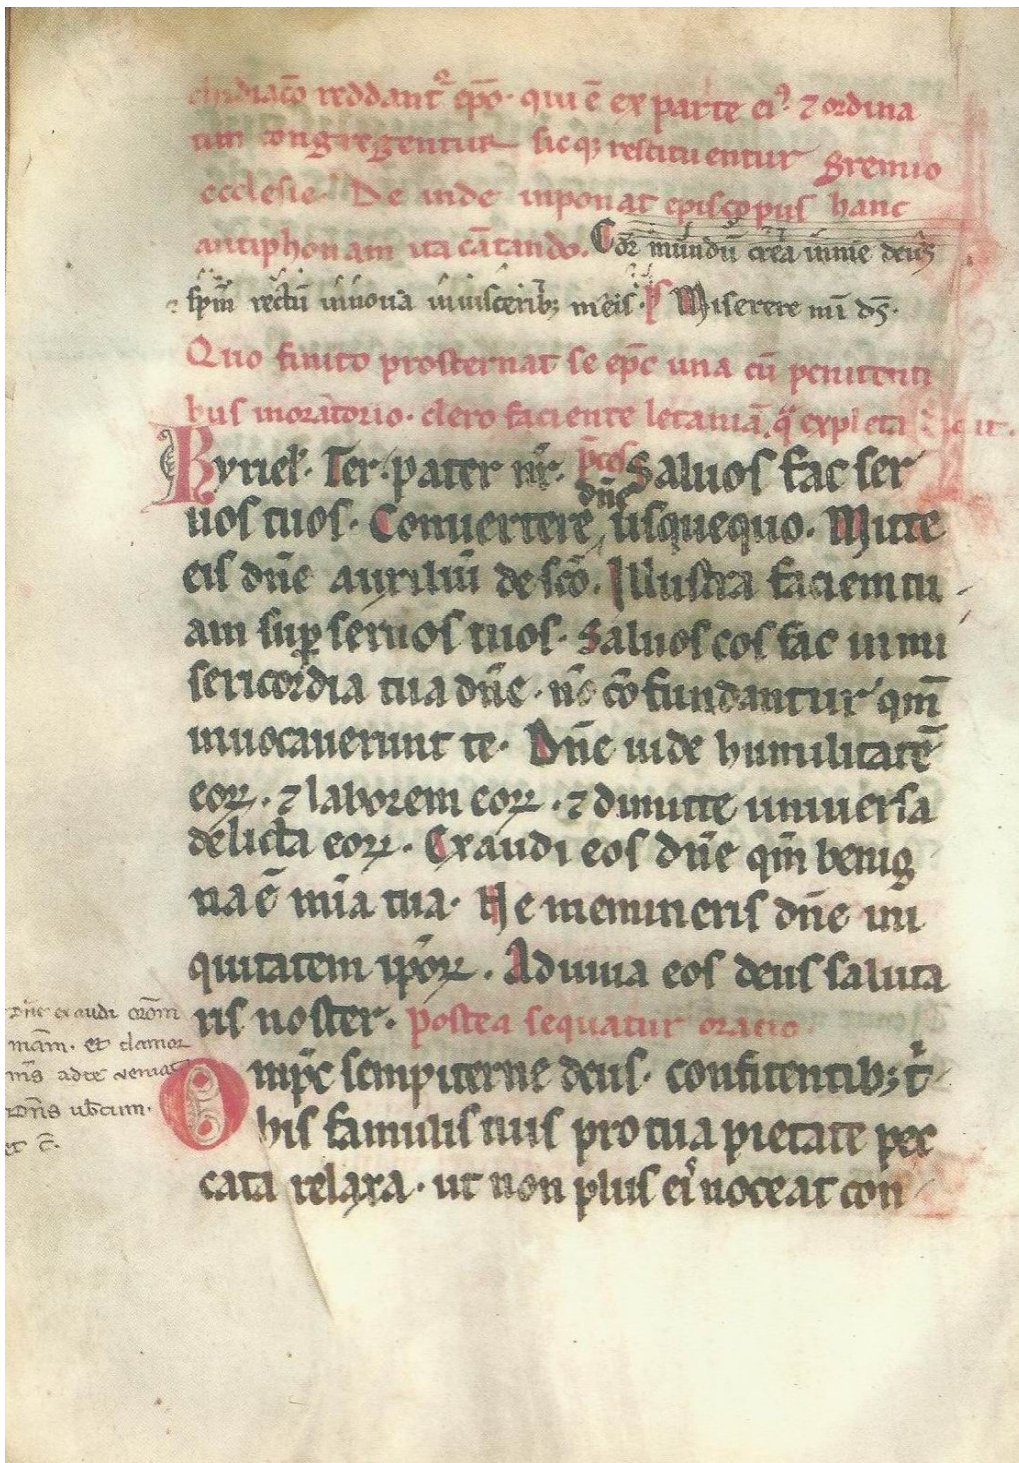 chidiaco᷃ reddant᷃ ep̅o· qui ē ex parte ei᾽· ⁊ ordina
tim congregentur sicq; restituentur gremio
ecclesie· De inde inponat episcopus hanc
antiphonam ita cātando. Cor mundū crea in me deus
⁊ sp̅m rectū innoua in uiscerib; meis· p̅s Miserere mī ds̅·
Quo finito prosternat se ep̅c una cū penitenti
bus in oratorio· clero faciente letaniā. q̄ expleta dicat.
Kyriel᾽· Ter· pater nr̅· p̅ces Saluos fac ser
uos tuos· Conuertere dn̅e usquequo· Mitte
eis dn̅e auxiliū de sc̅o. Illustra faciem tu
am sup̱ seruos tuos· Saluos eos fac in mi
sericordia tua dn̅e· n̅o cōfundantur qm̅
inuocauerunt te· Dn̅e uide humilitatē
eoꝝ· ⁊ laborem eoꝝ· ⁊ dimitte uniuersa
delicta eoꝝ· Exaudi eos dn̅e qm̅ benig
na ē mīa tua· Ne memineris dn̅e ini
quitatem ip̅oꝝ· Adiuua eos deus saluta
ris noster· postea sequatur oratio
Omp̅c sempiterne deus· confitentib; t͛
his famulis tuis pro tua pietate pec
cata relaxa· ut non plus ei᾽ noceat con
Dn̅e exaudi orōm
meam· et clamor
ms̅ ad te ueniat
Dn̅s ubcum·
et c̅·